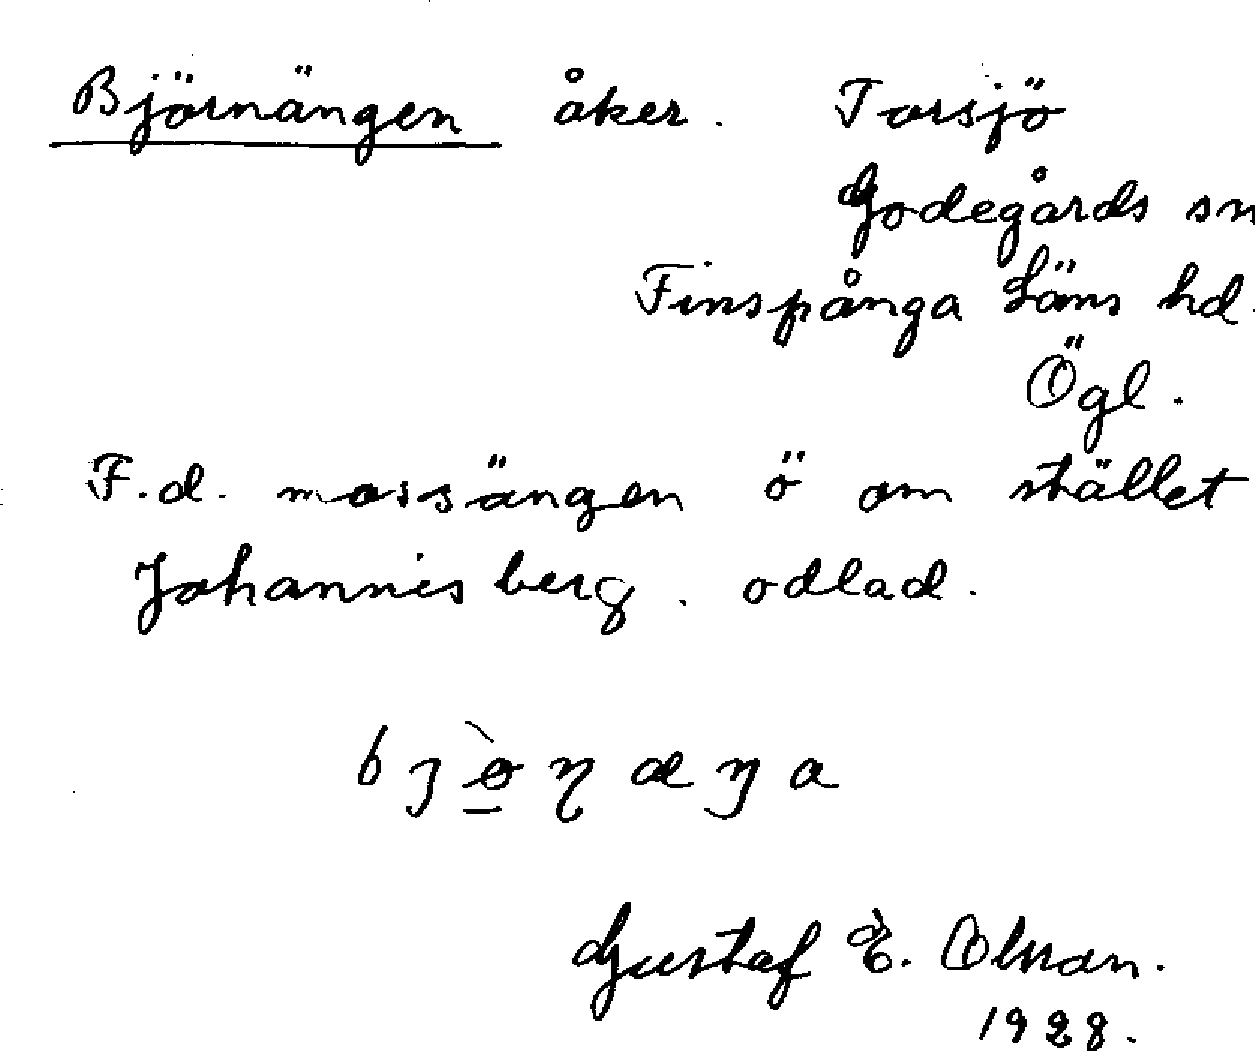 Björnängen åker. Torsjö
Godegårds sn
Finspånga Läns hd.
Ögl.
F.d. mossängen ö om stället
Johannisberg. odlad.
Gustaf E. Olman.
1928.